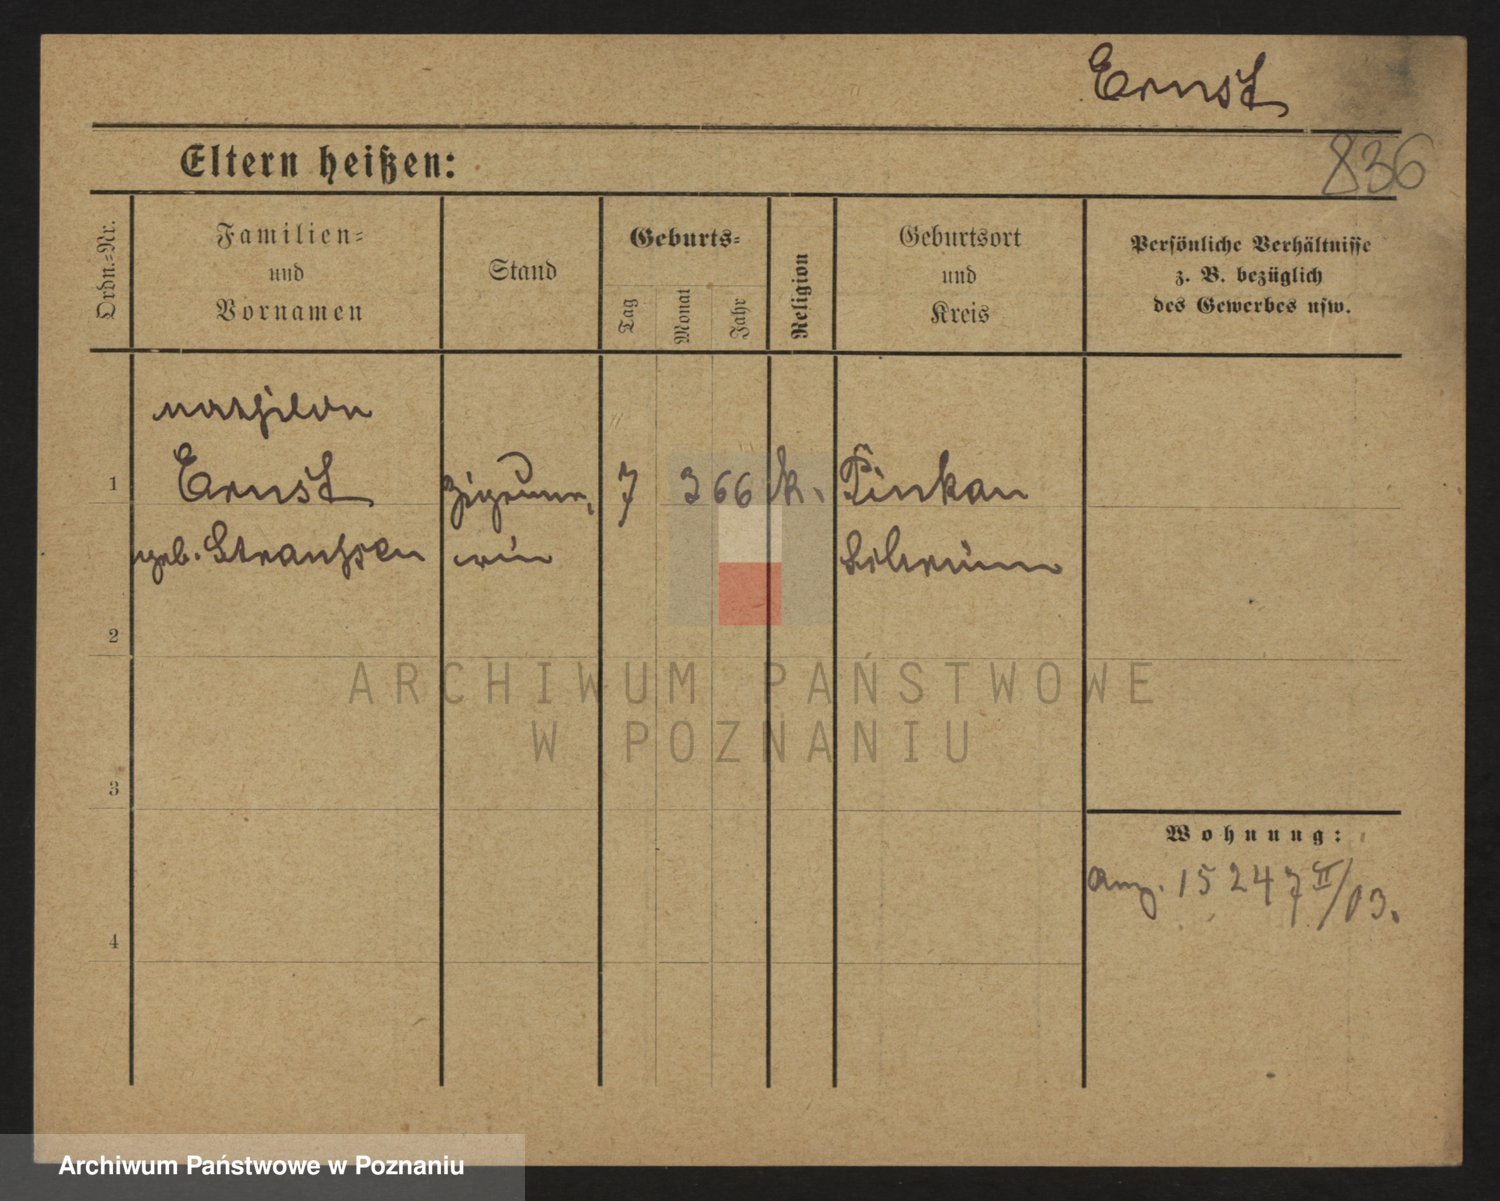 Ernst
836
Eltern heißen:
Ordn.-Nr.
Familien-
und
Vornamen
Stand
Geburts-
Tag
Monat
Jahr
Religion
Geburtsort
und
Kreis
Persönliche Verhältnisse
z. B. bezüglich
des Gewerbes usw.
Mathilde
1 Ernst Zigeune- 7 3 66 k. Pinkau
geb. rin
2
3
4
Wohnung:
Anz. 15247 II/03.
ARCHIWUM PAŃSTWOWE
W POZNANIU
Archiwum Państwowe w Poznaniu